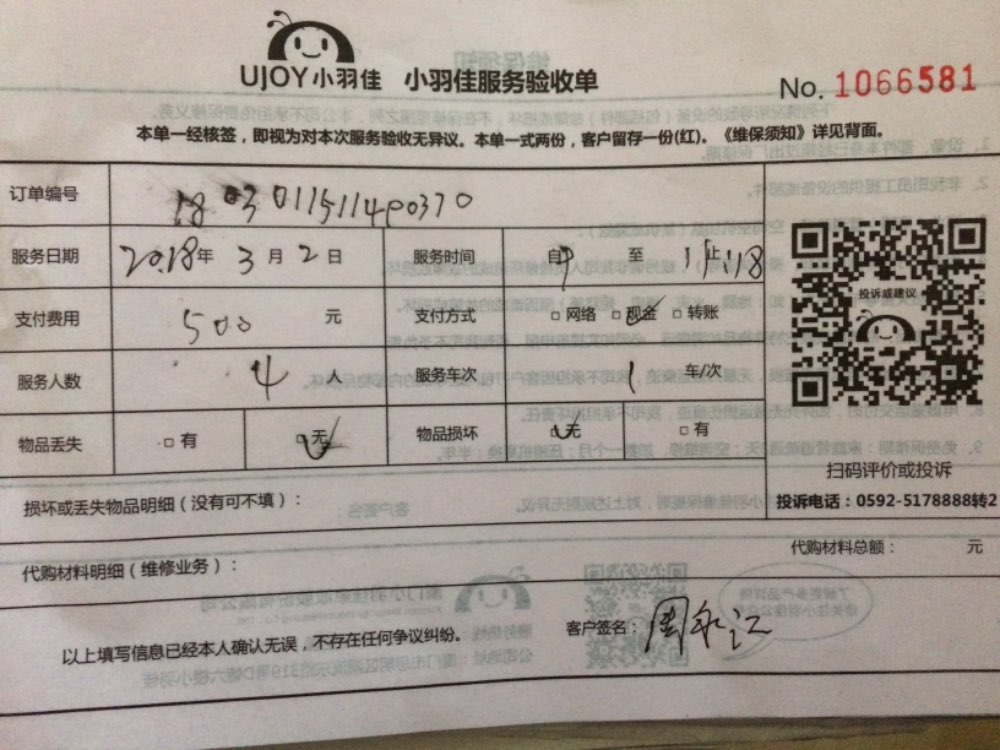 UJOY小羽佳 小羽佳服务验收单
No. 1066581
本单一经核签，即视为对本次服务验收无异议。本单一式两份，客户留存一份(红)。《维保须知》详见背面。
订单编号
服务日期 2018年 3 月 2 日 服务时间 自 至 止
支付费用 500 元 支付方式 □网络 □现金 □转账
服务人数 4 人 服务车次 1 车/次
物品丢失 □有 □无 物品损坏 □无 □有
投诉或建议
扫码评价或投诉
投诉电话：0592-5178888转2
损坏或丢失物品明细（没有可不填）：
代购材料总额： 元
代购材料明细（维修业务）：
以上填写信息已经本人确认无误，不存在任何争议纠纷。
客户签名：周永江